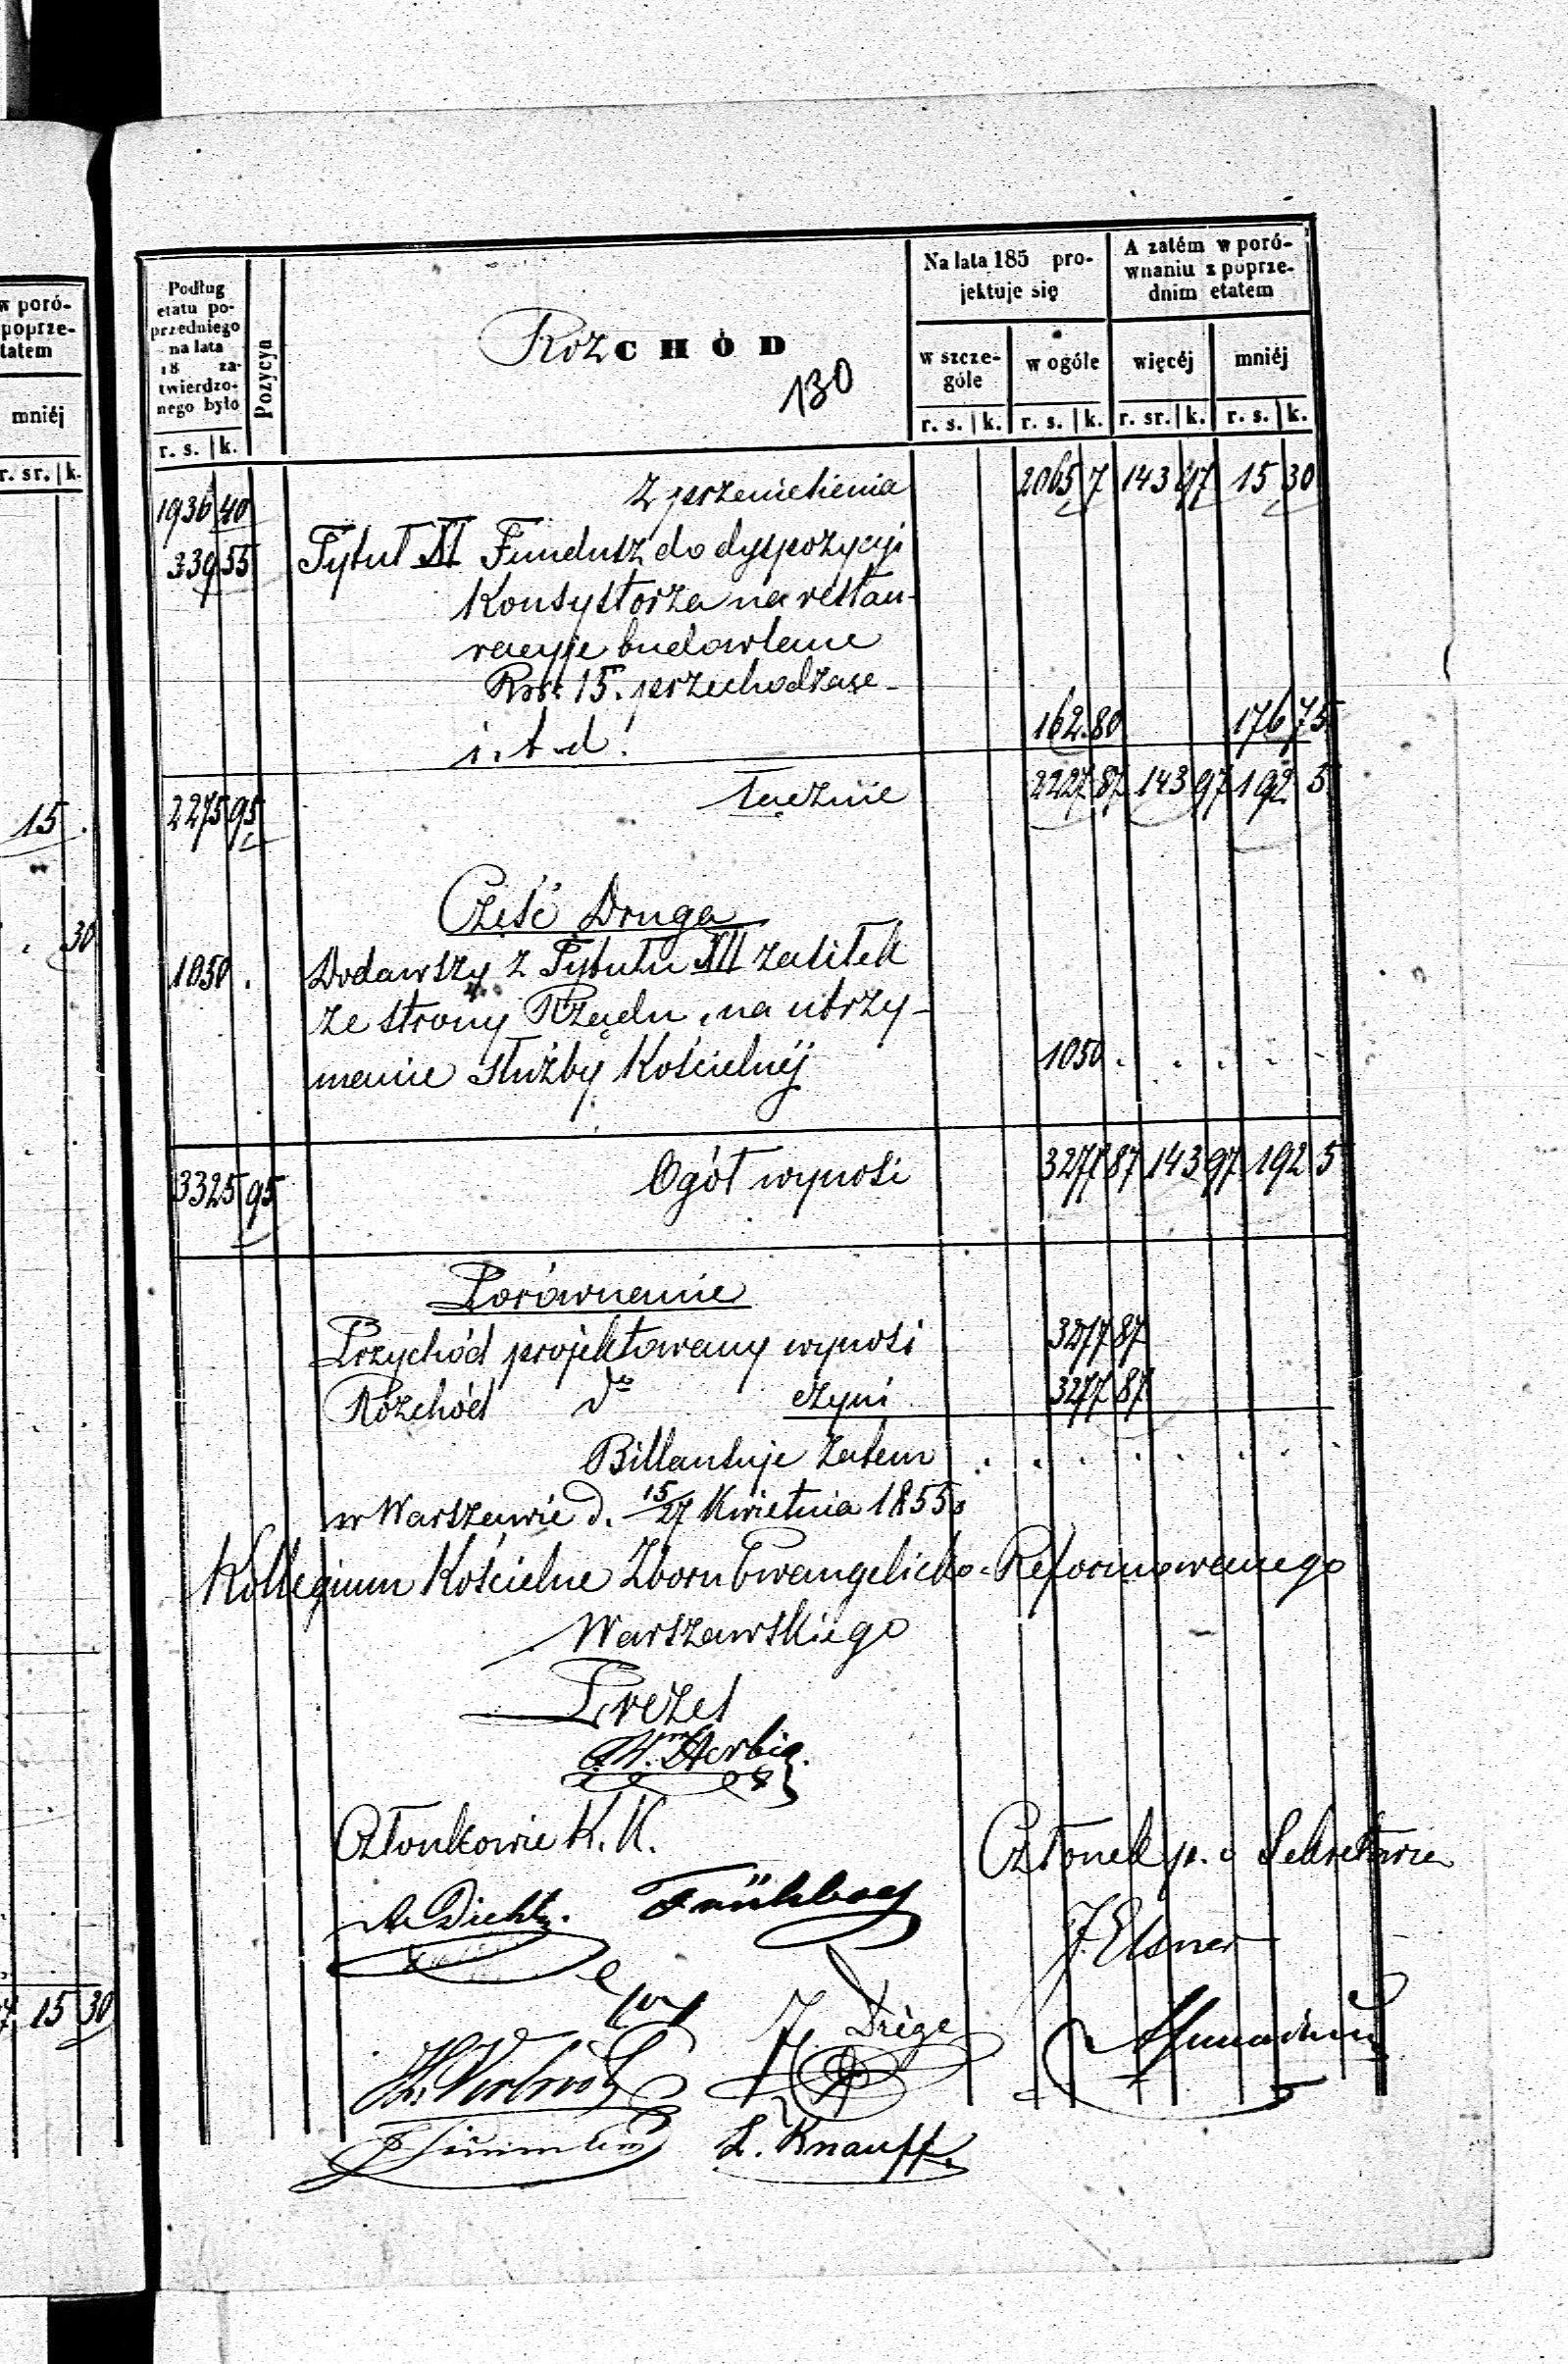 w poró-
poprze-
tatem
mniéj
r. sr. k.
15.
. 30
15 30
Podług
etatu po-
przedniego
na lata
18 za-
twierdzo-
nego było
r. s. k.
Pozycya
RozCHÓD
130
Na lata 185 pro-
jektuje się
w szcze-
góle
r. s. k.
w ogóle
r. s. k.
A zatém w poró-
wnaniu z poprze-
dnim etatem
więcéj
r. sr. k.
mniéj
r. s. k.
1936 40 Z przeniesienia 2065 7 143 97 15 30
339 55 Tytuł XI Fundusz do dyspozycyi
Konsystorza na restau-
racyje budowlane
Rsr. 15. przechodzące
i. t. d. 162 80 176 75
2275 95 Łącznie 2227 87 143 97 192 5
Część Druga
1050 . Dodawszy z Tytułu XII zasiłek
ze strony Rządu, na utrzy-
manie służby Kościelnéj 1050 . . . . .
3325 95 Ogół wynosi 3277 87 143 97 192 5
Porównanie
Przychód projektowany wynosi 3277 87
Rozchód do czyni 3277 87
Billansuje zatem . . . . . . . .
w Warszawie d. 15/27 Kwietnia 1855
Kollegium Kościelne Zboru Ewangelicko-Reformowanego
Warszawskiego
Prezes
Wm Herbig.
Członkowie K. K.
Członek p. o Sekretarza
J. Elsner
J Drége
L. Knauff.